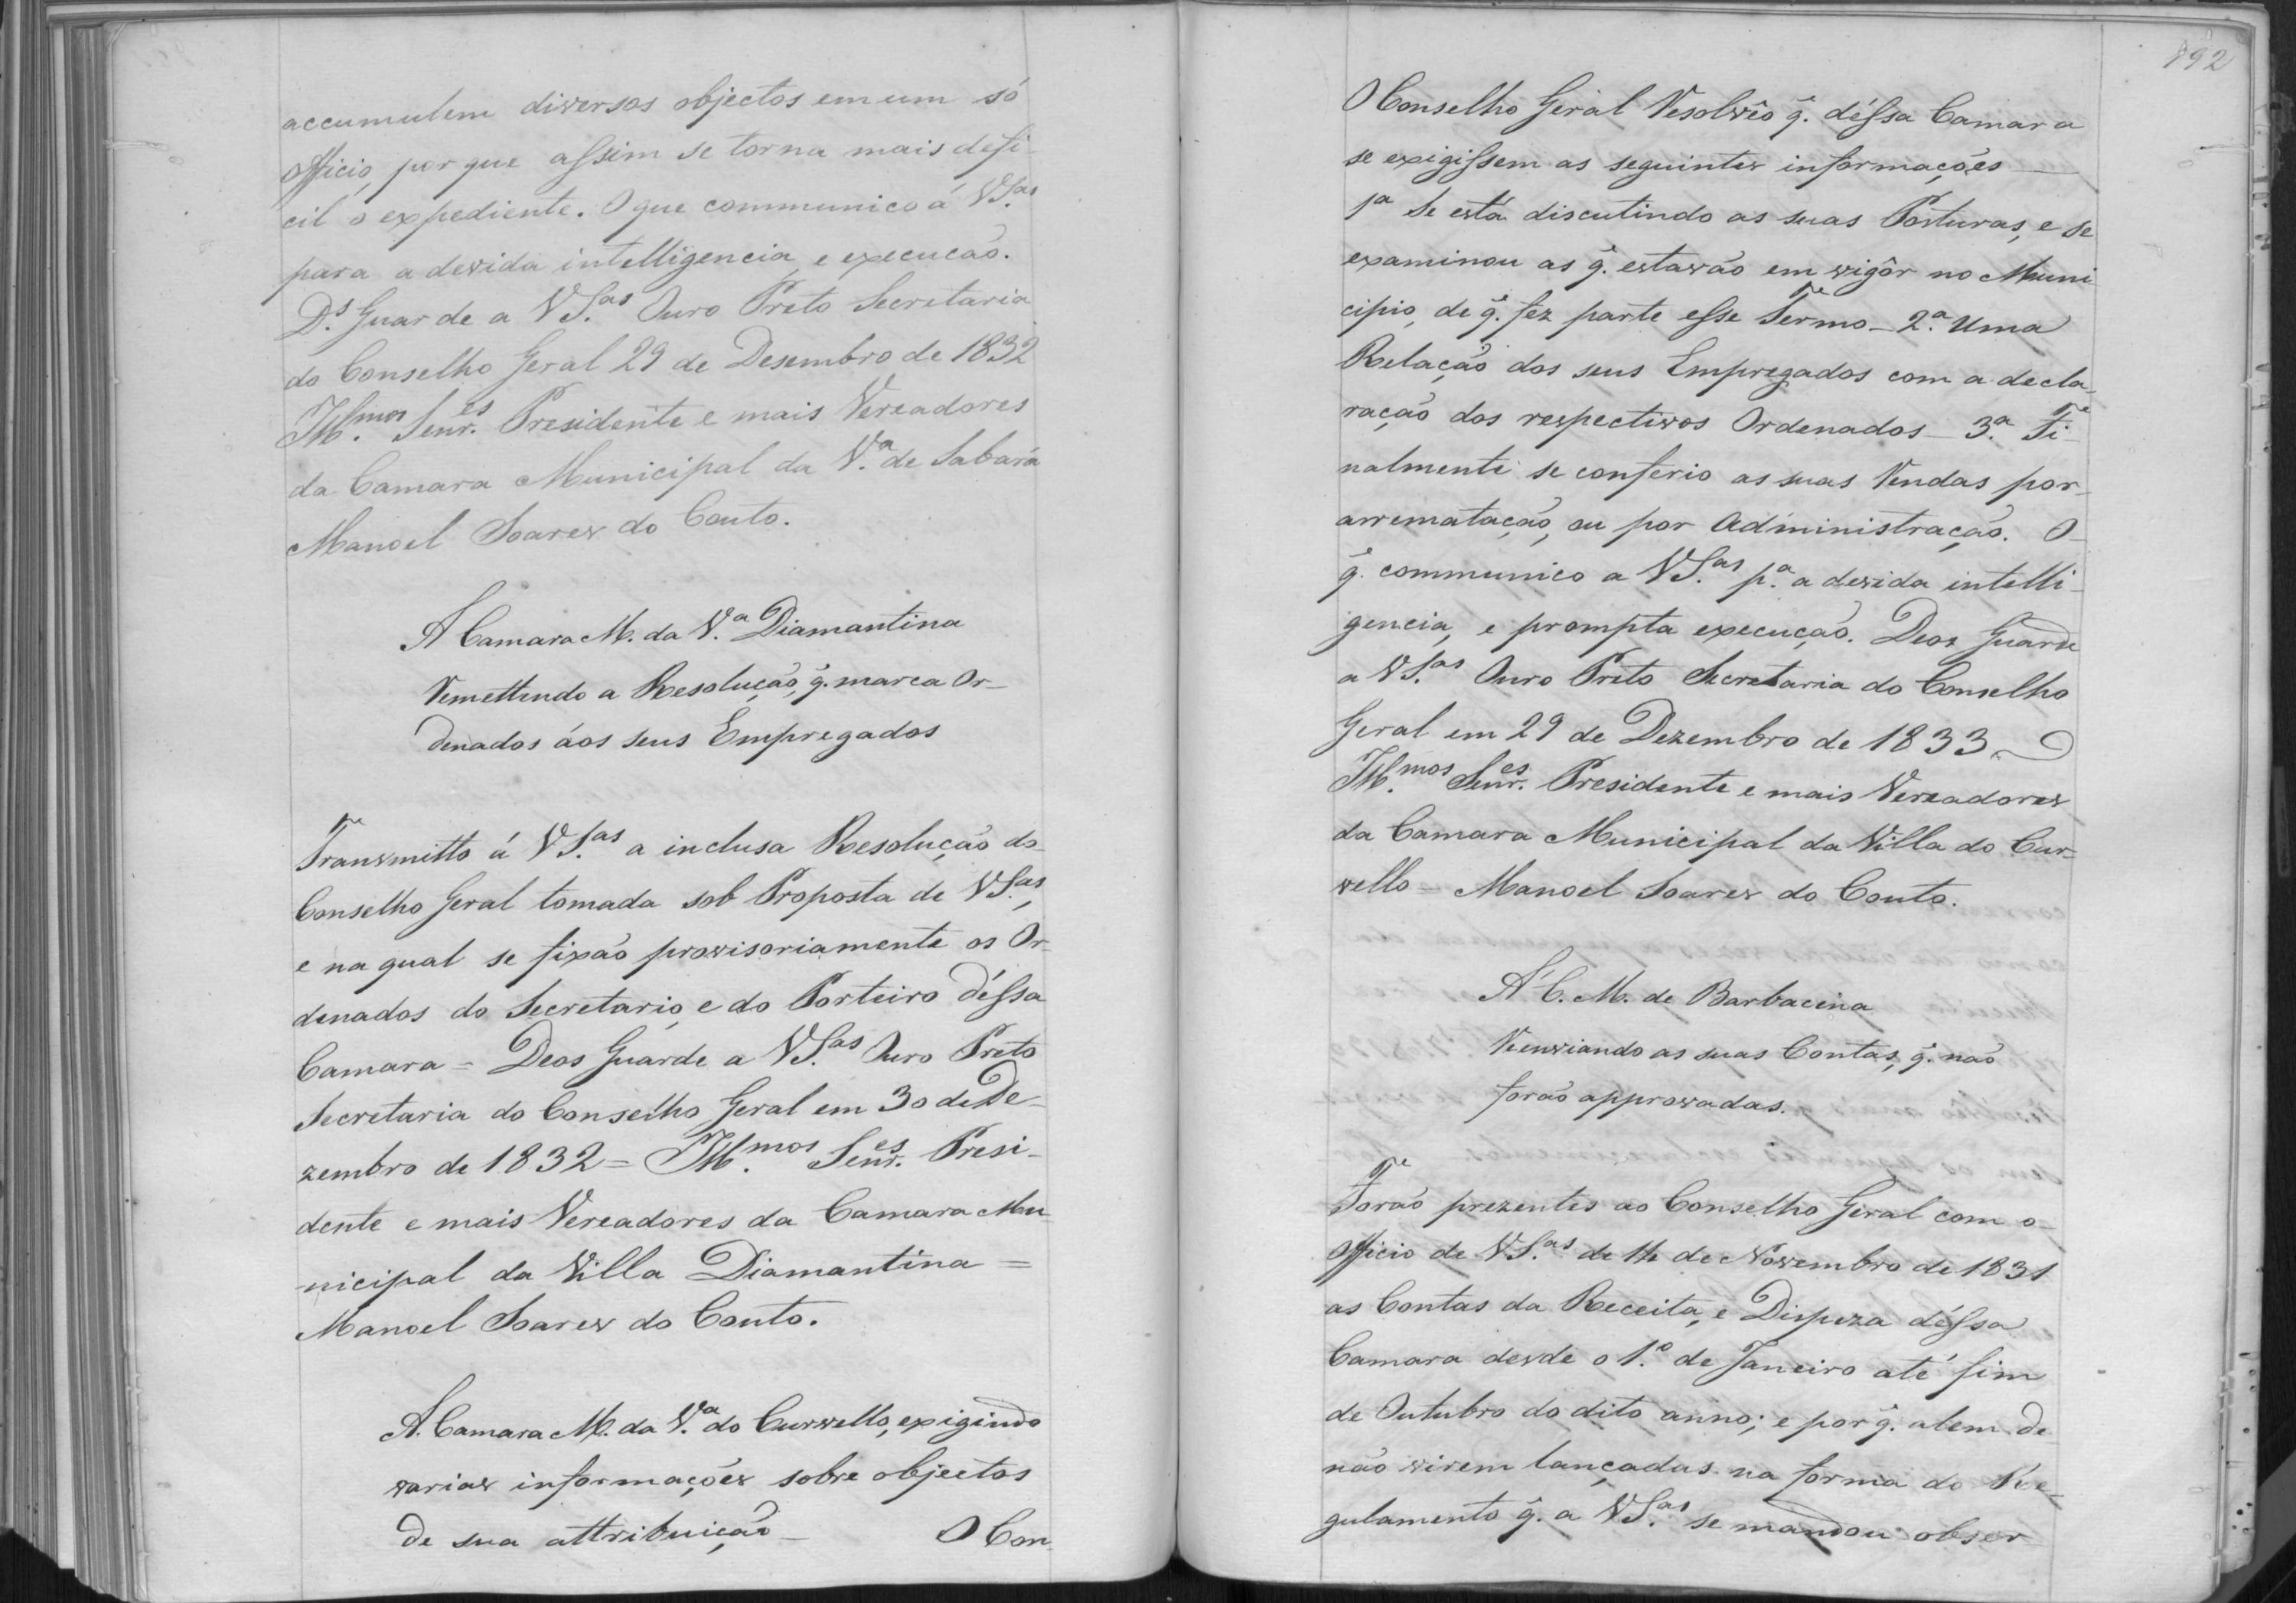 accumulem diversos objectos em um só
Officio, por que assim se torna mais defi-
cil o expediente. O que communico á VS.as
para a devida intelligencia, e execucão.
D.s Guarde a VS.as Ouro Preto Secretaria
do Conselho Geral 29 de Desembro de 1832
Ill.mos Senr.es Presidente e mais Vereadores
da Camara Municipal da V.a de Sabará
Manoel Soares do Couto.
A Camara M. da V.a Diamantina
Remettendo a Resolução, q̃. marca Or-
denados áos seus Empregados
Transmitto á VS.as a inclusa Resolução do
Conselho Geral tomada sob Proposta de VS.as,
e na qual se fixão provisoriamente os Or-
denados do Secretario, e do Porteiro déssa
Camara = Deos Guarde a VS.as Ouro Preto
Secretaria do Conselho Geral em 30 de De-
zembro de 1832 = Ill.mos Senr.es Presi-
dente e mais Vereadores da Camara Mu-
nicipal da Villa Diamantina =
Manoel Soares do Couto.
A. Camara M. da V.a do Curvello, exigindo
varias informações sobre objectos
de sua attribuição —
O Con-
192
O Conselho Geral Resolvêo q̃. déssa Camara
se exigissem as seguintes informações —
1a Se está discutindo as suas Posturas, e se
examinou as q̃. estavão em vigôr no Muni-
cipio, de q̃. fez parte esse Termo — 2.a Uma
Relação dos seus Empregados com a decla-
ração dos respectivos Ordenados — 3.a Fi-
nalmente se conferio as suas Rendas por-
arrematação, ou por Administração. O
q̃. communico a VS.as p.a a devida intelli-
gencia, e prompta execução. Deos Guarde
a VS.as Ouro Preto Secretaria do Conselho
Geral em 29 de Dezembro de 1833
Ill.mos Senr.es Presidente e mais Vereadores
da Camara Municipal da Villa do Cur-
vello — Manoel Soares do Couto.
Á C. M. de Barbacena
Reenviando as suas Contas, q̃. não
forão approvadas.
Forão prezentes ao Conselho Geral com o
Officio de VS.as de 14 de Novembro de 1831
as Contas da Receita, e Dispeza déssa
Camara desde o 1.o de Janeiro até fim
de Outubro do dito anno; e por q̃. alem de
não virem lançadas na forma do Re-
gulamento q̃. a VS.as se mandou obser